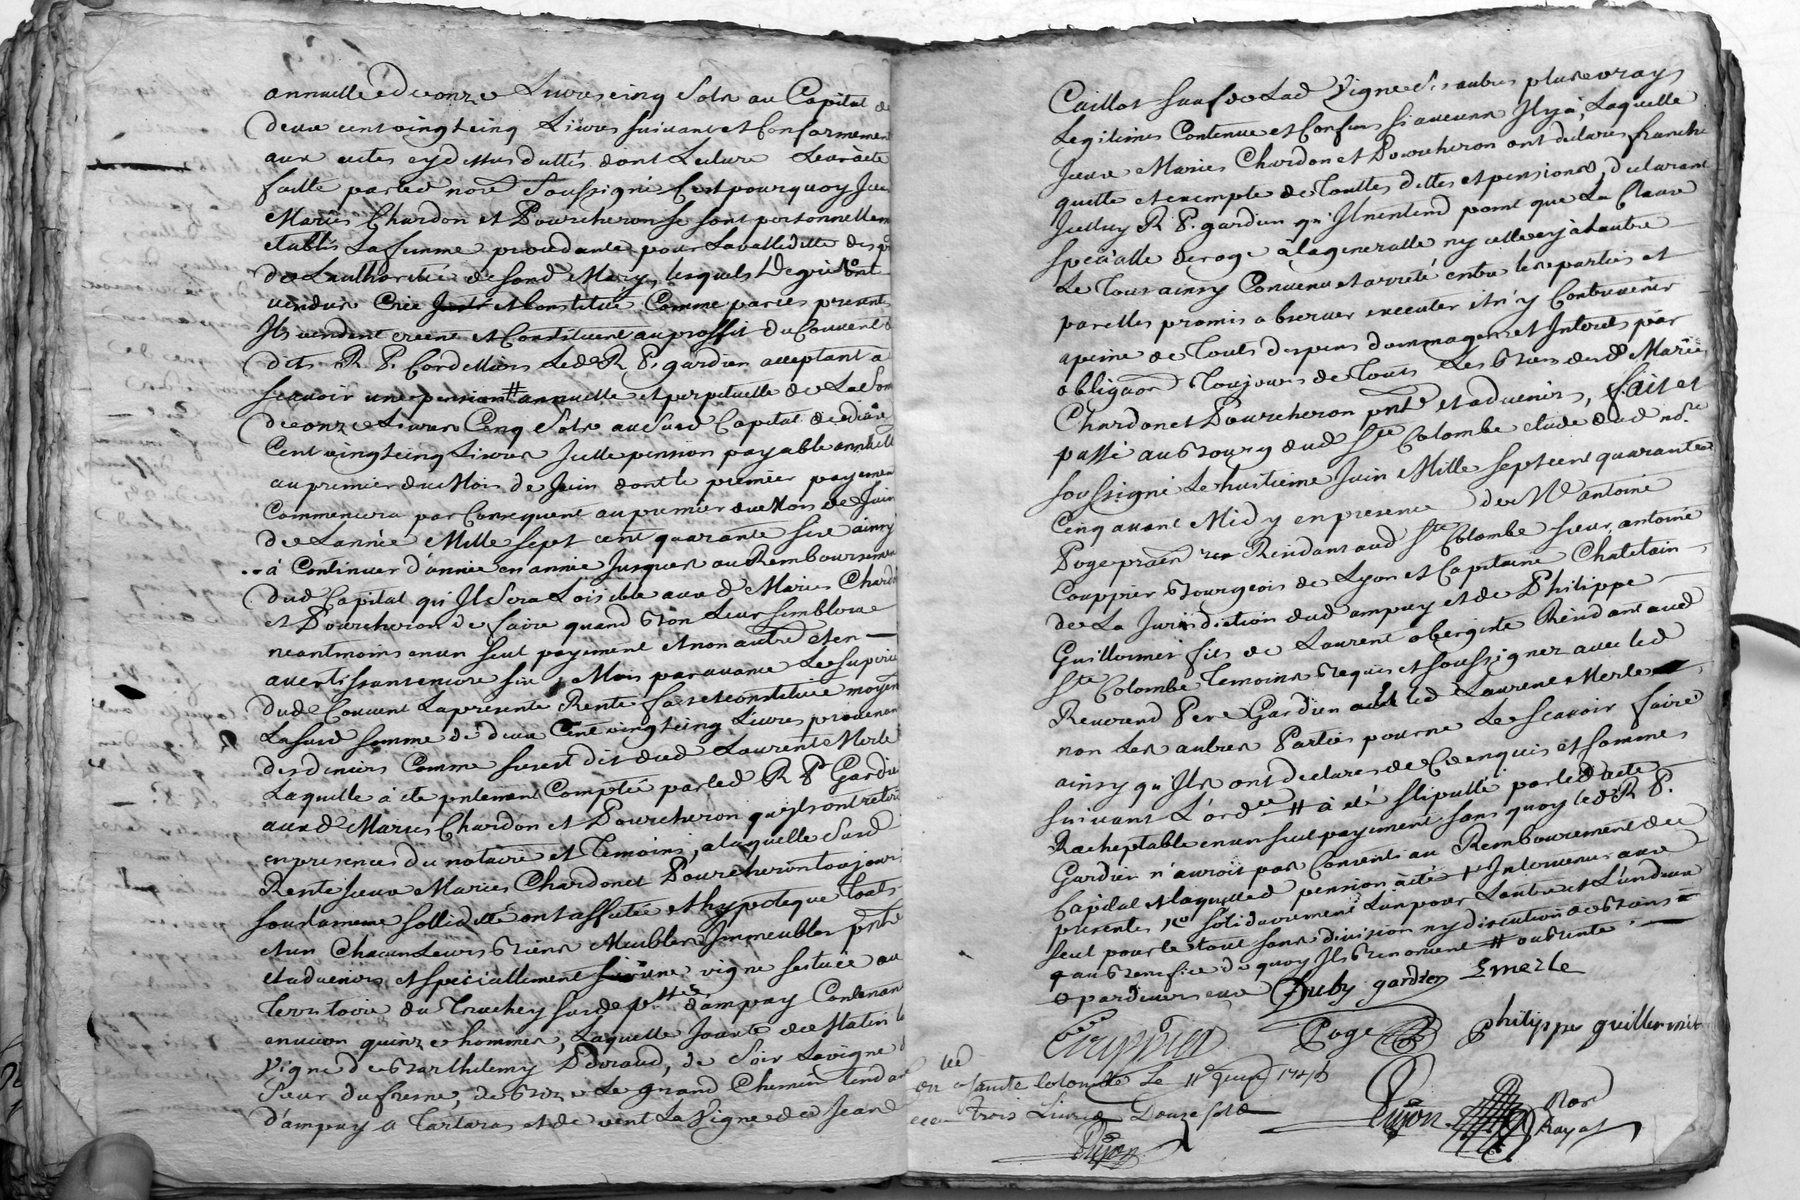 annuelle de onze Livres cinq Sols au Capital de
deux cent vingt cinq Livres suivant et Conformement
aux actes cy dessus dattés dont Lecture Leur a été
faitte par led nore Soussigné C'est pourquoy Iceux
Mariés Chardon et Pourcheron se sont personnellem
établis La femme procedante pour La valliditté des ptes
de L'authorité de sond Mary, lesquels De gré ont
vendu Créé et Constitué Comme par ces presentes
Ils vendent créent et Constituent au proffit du Couvent
dits R. P. Cordelliers Led R. P. gardien acceptant a
scavoir une pension # annuelle et perpetuelle de La Som
de onze Livres Cinq Sols au Susd Capital de deux
Cent vingt cinq Livres Icelle pension payable annuelle
au premier du Mois de Juin dont le premier payement
Commencera par Consequent au premier du Mois de Juin
de L'année Mille sept cent quarante six ainsy
à Continuer d'année en année Jusques au Remboursemen
dud Capital qu'Il Sera Loisible aux d Mariés Chardon
et Pourcheron de faire quand bon Leur semblera
neantmoins en un seul payement et non autre et en
avertissant encore six Mois par avance Le Superieur
dud Couvent La presente Rente faitte et constituée moyen
La susd somme de deux Cent vingt cinq Livres provenan
des deniers Comme susest dit dud Laurent Merle
Laquelle à eté pntement Comptée par led R. P. Gardien
auxd Mariés Chardon et Pourcheron qu'ils ont retiré
en presences du notaire et Temoins, a laquelle Susd
Rente Iceux Mariés Chardon et Pourcheron toujours
sous la meme solliditté ont affecté et hypotequé touts
et un Chacun Leurs biens Meubles Immeubles pnts
et advenirs et speciallement une vigne scituée au
Territoire du Truchey susde psse d'ampuy Contenant
environ quinze hommées, Laquelle Jouxte de Matin la
Vigne de Barthelemy Doraud, de Soir La vigne d
Sieur dufresne, de bize Le grand Chemin tendant
d'ampuy a Tartaras et de vent La Vigne de d Jean
Caillot sauf de Lad Vigne Ses autres plus vrays
Legitimes Contenue et Confins si aucuns Il y a, Laquelle
Iceux Mariés Chardon et Pourcheron ont déclaré franche
quitte et exempte de Touttes dettes et pensions, declarant
Icelluy R. P. gardien qu'Il n'entend point que La Clause
speciallle deroge à la generalle ny celle cy à L'autre
Le Tout ainsy Convenu et arreté entre les parties et
par elles promis observer executer et n'y Contrevenir
apeine de Touts depens dommages et Interets par
obligaon Toujours de Touts Les biens desd Mariés
Chardon et Pourcheron pnts et advenirs, fait et
passé au bourg dud Ste Colombe etude dud nore
soussigné Le huitieme Juin Mille sept cent quarante
Cinq avant Midy en presence de Me antoine
Poge praen Residant aud Ste Colombe sieur antoine
Couppier bourgeois de Lyon et Capitaine Chatelain
de La Jurisdiction dud ampuy et de Philippe
Guillermet fils de Laurent obergiste Residant aud
Ste Colombe Temoins requis et soussignez avec led
Reverend Pere Gardien et led Laurent Merle
non Les autres Parties pour ne Le scavoir faire
ainsy qu'Ils ont declaré de Ce enquis et sommés
suivant L'orde # à eté stipullé par led acte
Racheptable en un seul payement sans quoy led R. P.
Gardien n'auroit pas Consenti au Remboursement du
Capital et laquelle d pension à été + Intervenus aux
presentes solidairement L'un pour L'autre et L'un d'eux
seul pour le tout sans division ny discution de biens
au benefice de quoy Ils Renoncent # ou Rente
o pardevers eux Duby gardien Lmerle
Couppier Poge philippe guillermet
Con led a Sainte Colombe Le 11e Juin 1745
receu trois Livres Douze sols
Dujon
Dujon
Nore
Royal